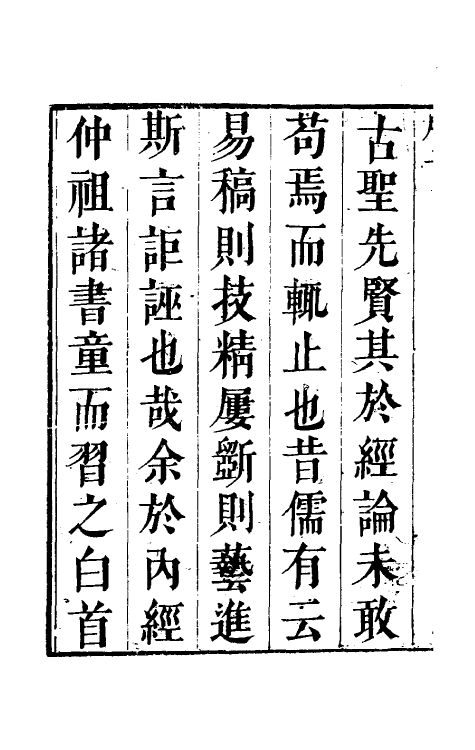 古聖先賢其於經論未敢
苟焉而輒止也昔儒有云
易稿則技精屢斵則藝進
斯言詎誣也哉余於內經
仲祖諸書童而習之白首